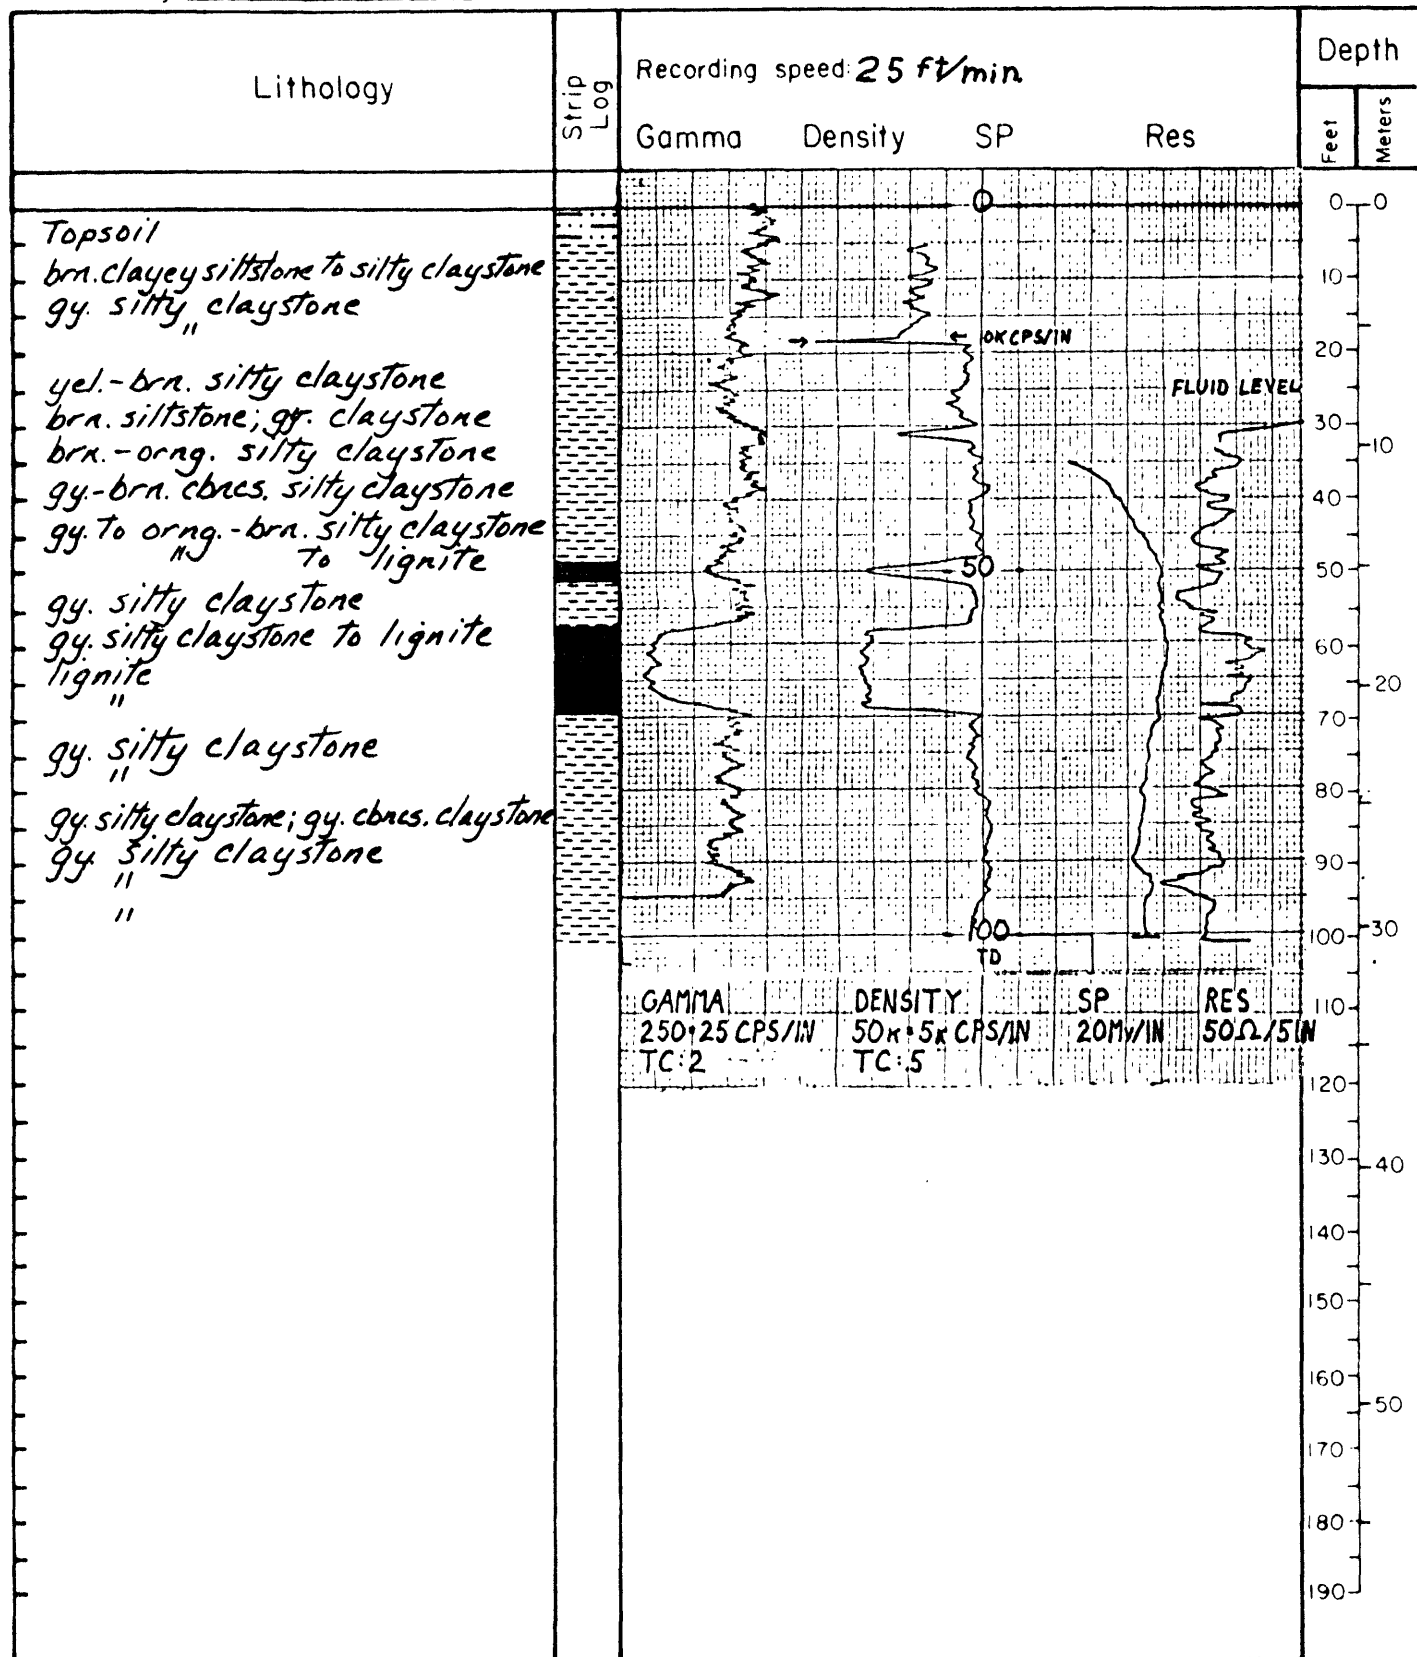 Lithology
Strip Log
Recording speed: 25 ft/min
Gamma Density SP Res
Depth
Feet
Meters
Topsoil
brn. clayey siltstone to silty claystone
gy. silty claystone
"
yel.-brn. silty claystone
brn. siltstone; gy. claystone
brn.-orng. silty claystone
gy.-brn. cbncs. silty claystone
gy. to orng.-brn. silty claystone
" to lignite
gy. silty claystone
gy. silty claystone to lignite
lignite
"
gy. silty claystone
"
gy. silty claystone; gy. cbncs. claystone
gy. silty claystone
"
"
0
0KCPS/IN
FLUID LEVEL
50
00
TD
GAMMA DENSITY SP RES
250·25 CPS/IN 50K·5K CPS/IN 20MV/IN 50Ω/5IN
TC:2 TC:.5
0 0
10
20
30
10
40
50
60
20
70
80
90
100 30
110
120
130
40
140
150
160
50
170
180
190